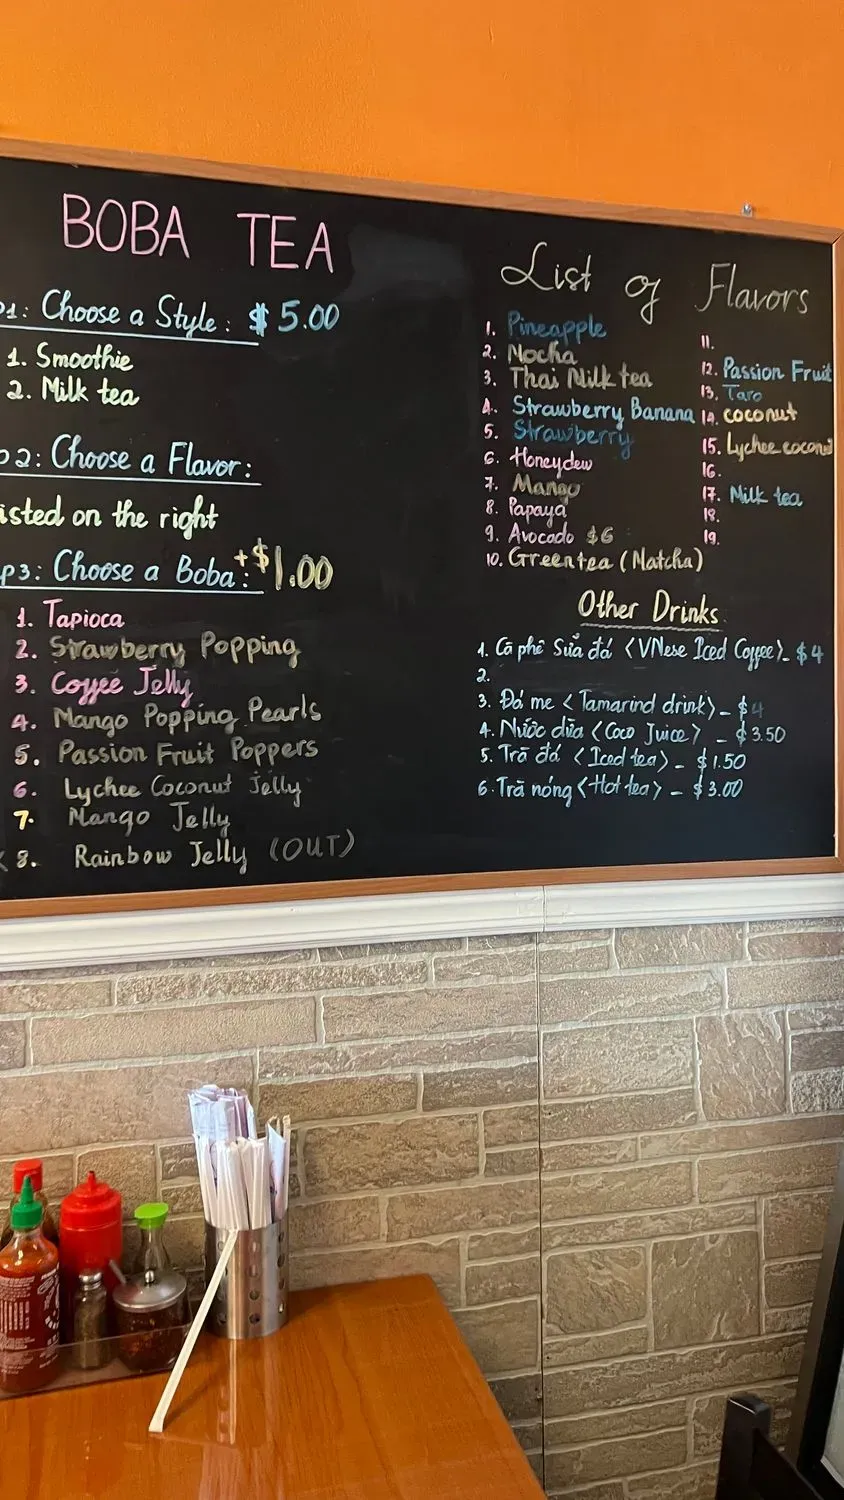 BOBA TEA
p1: Choose a Style: $5.00
1. Smoothie
2. Milk tea
p2: Choose a Flavor:
isted on the right
p3: Choose a Boba: +$1.00
1. Tapioca
2. Strawberry Popping
3. Coffee Jelly
4. Mango Popping Pearls
5. Passion Fruit Poppers
6. Lychee Coconut Jelly
7. Mango Jelly
8. Rainbow Jelly (OUT)
List of Flavors
1. Pineapple
2. Mocha
3. Thai Milk tea
4. Strawberry Banana
5. Strawberry
6. Honeydew
7. Mango
8. Papaya
9. Avocado $6
10. Green tea (Matcha)
11.
12. Passion Fruit
13. Taro
14. coconut
15. Lychee coconut
16.
17. Milk tea
18.
19.
Other Drinks
1. Cà phê Sữa đá <VNese Iced Coffee> - $4
2.
3. Đá me <Tamarind drink> - $4
4. Nước dừa <Coco Juice> - $3.50
5. Trà đá <Iced tea> - $1.50
6. Trà nóng <Hot tea> - $3.00